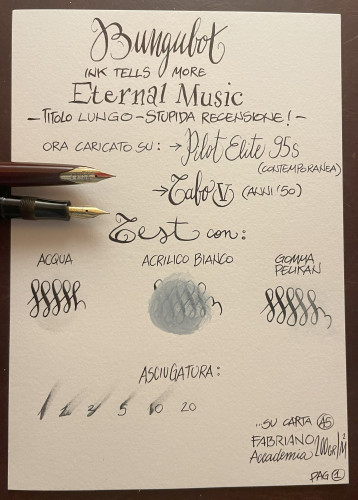 Bungubot
INK TELLS MORE
Eternal Music
- TITOLO LUNGO - STUPIDA RECENSIONE! -
ORA CARICATO SU: → Pilot Elite 95s
(CONTEMPORANEA)
→ Tabo V (ANNI '50)
Test con:
ACQUA ACRILICO BIANCO GOMMA PELIKAN
ASCIUGATURA:
1 2 3 5 10 20
...SU CARTA A5
FABRIANO
Accademia 200GR/M²
PAG 1